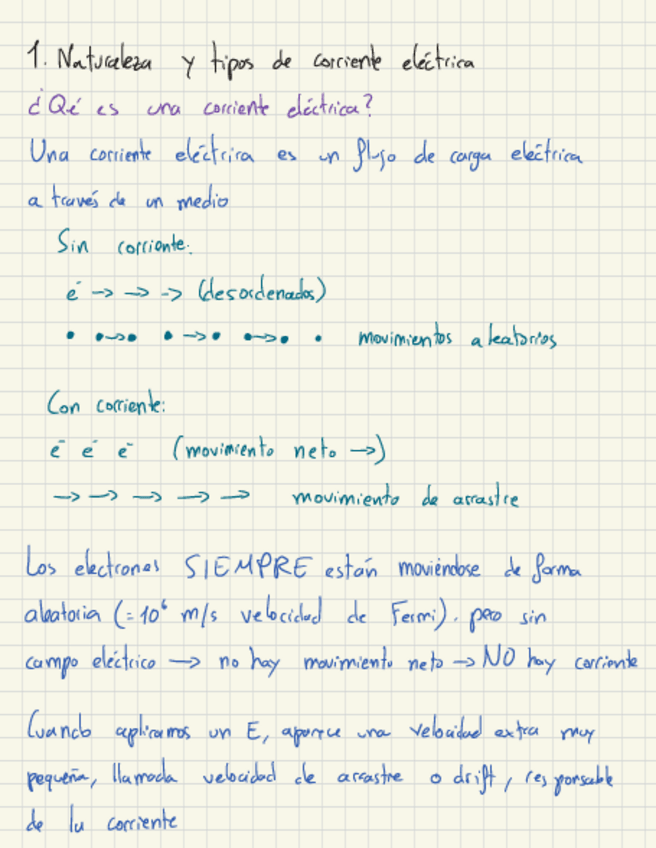 1. Naturaleza y tipos de corriente eléctrica
¿Qé es una corriente eléctrica?
Una corriente eléctrica es un flujo de carga eléctrica
a través de un medio
Sin corriente:
e⁻ → → → (desordenados)
• •→• • →• •→• • movimientos aleatorios
Con corriente:
e⁻ e⁻ e⁻ (movimiento neto →)
→ → → → → movimiento de arrastre
Los electrones SIEMPRE están moviéndose de forma
aleatoria (= 10⁶ m/s velocidad de Fermi). pero sin
campo eléctrico → no hay movimiento neto → NO hay corriente
Cuando aplicamos un E, aparece una velocidad extra muy
pequeña, llamada velocidad de arrastre o drift, responsable
de la corriente